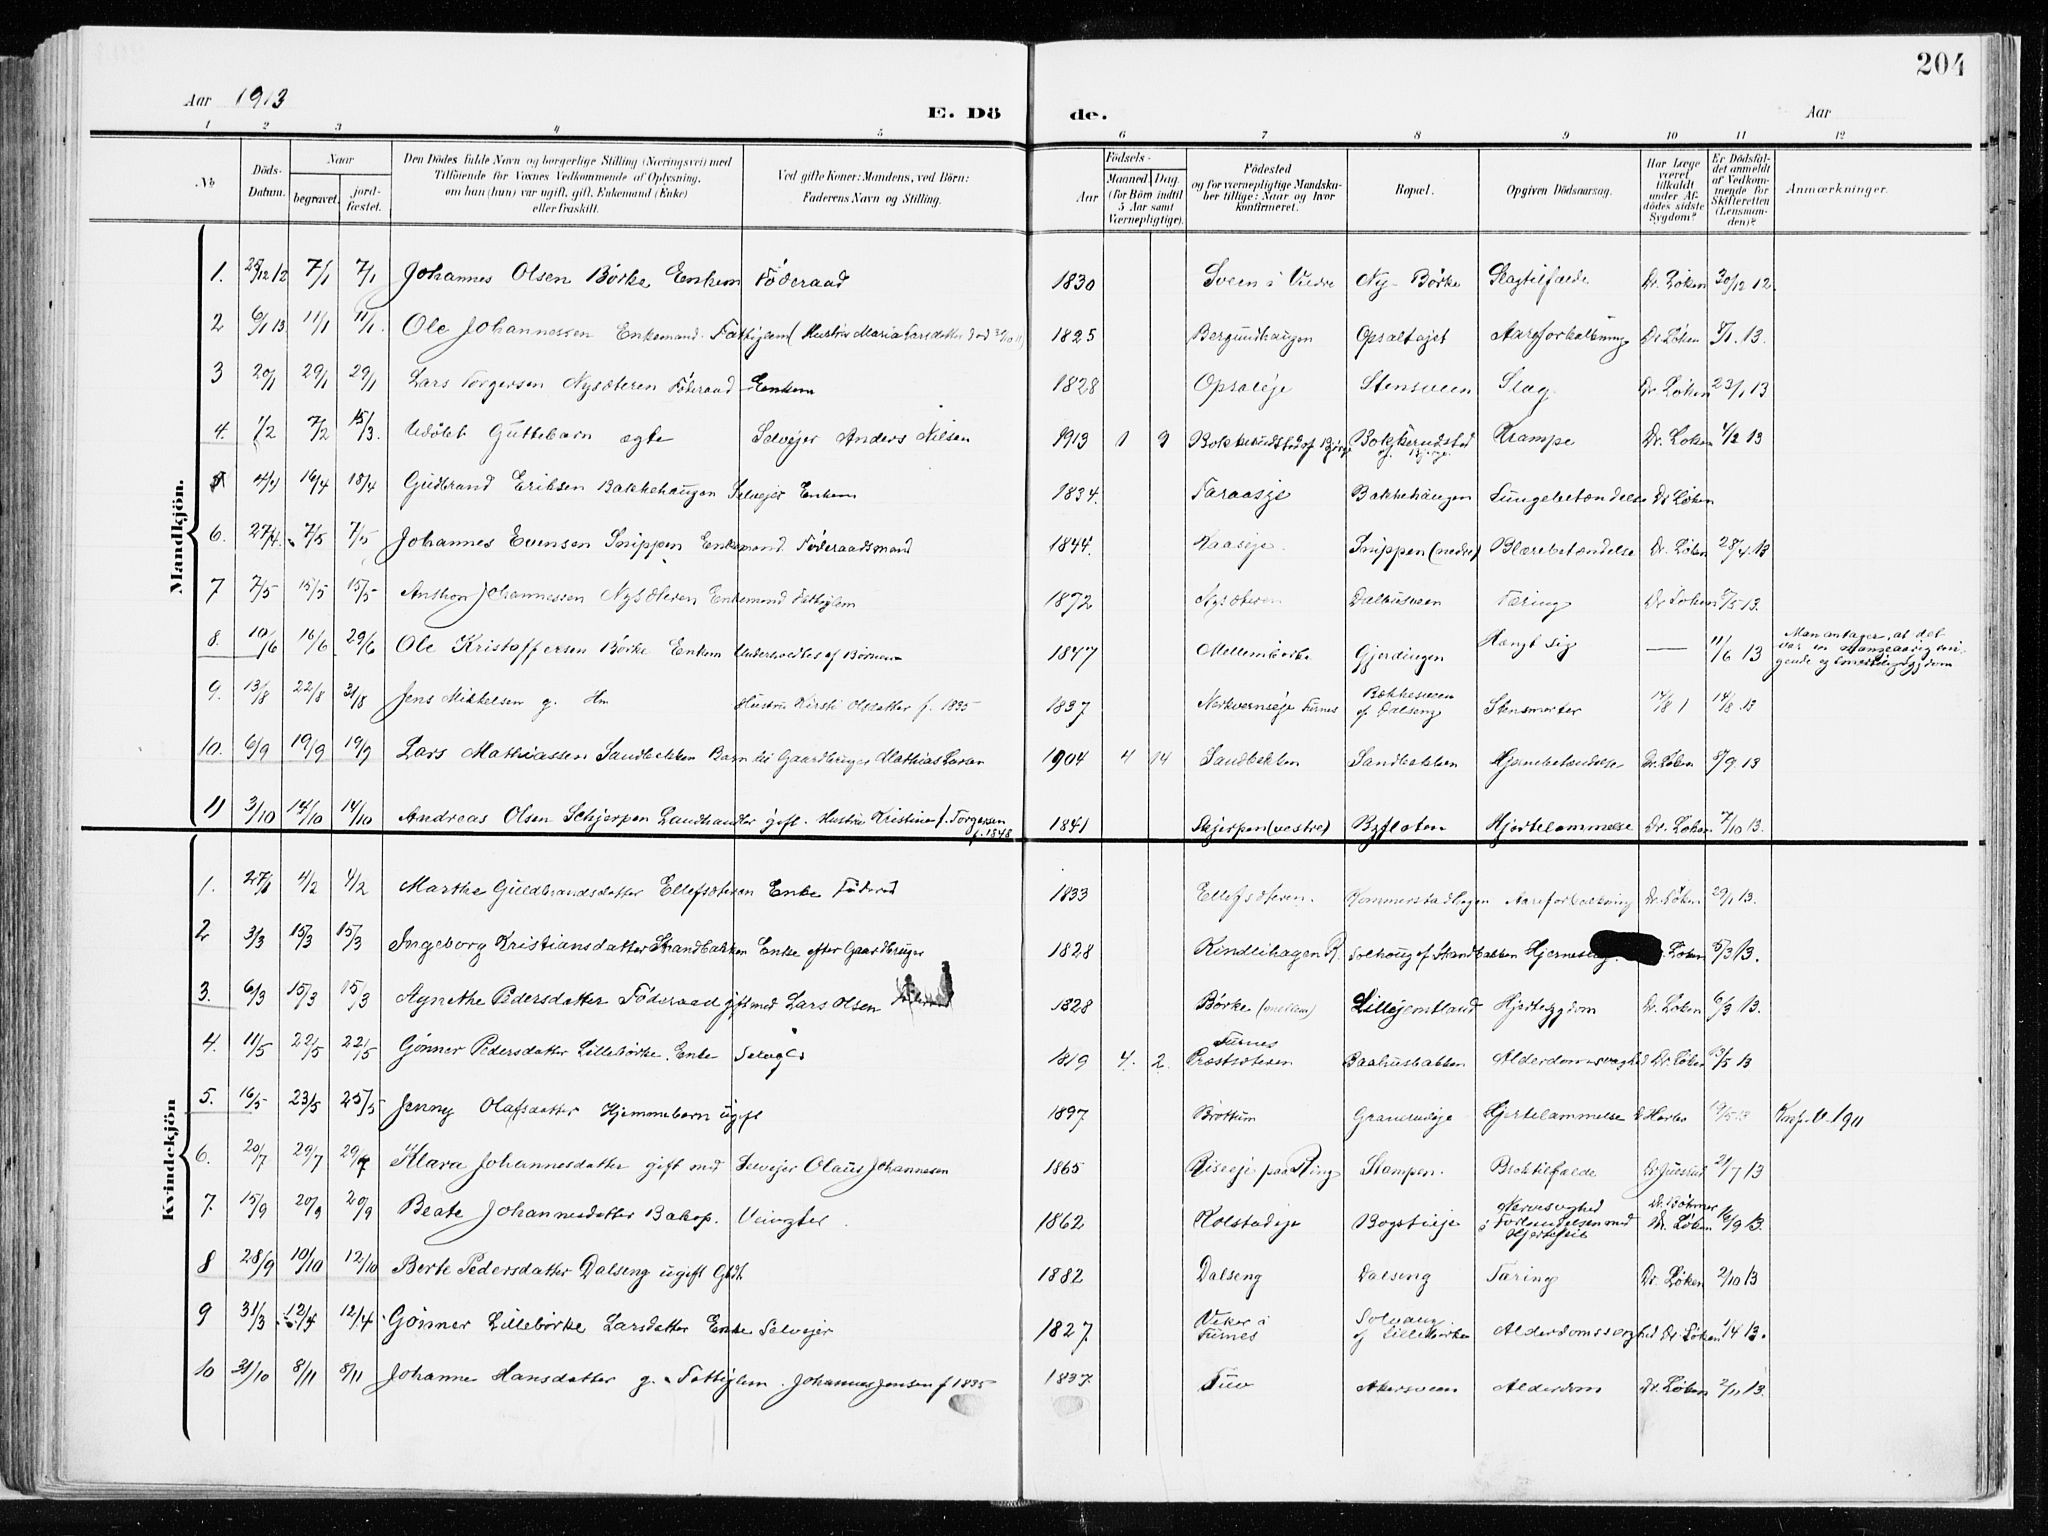 204
Aar 1913
E. Dö de.
Aar
1 2 3 4 5 6 7 8 9 10 11 12
No
Döds-Datum.
Naar
begravet.
jord-fæstet.
Den Dödes fulde Navn og borgerlige Stilling (Næringsvei) med
Tilföiende for Voxnes Vedkommende af Oplysning.
om han (hun) var ugift, gift, Enkemand (Enke)
eller fraskilt.
Ved gifte Koner: Mandens, ved Börn:
Faderens Navn og Stilling.
Födsels-
Aar
Maaned. Dag.
(for Börn indtil
5 Aar samt
Værnepligtige).
Födested
og for værnepligtige Mandska-
ber tillige: Naar og hvor
konfirmeret.
Bopæl.
Opgiven Dödsaarsag.
Har Læge
været
tilkaldt
under Af-
dödes sidste
Sygdom?
Er Dödsfal-
det anmeldt
af Vedkom-
mende for
Skifteretten
(Lensman-
den)?
Anmærkninger.
Mandkjön.
1. 7/1 7/1 Johannes Olsen Børke Enkem Føderaad 1830 Sveen i Ny-Børke Slagtilfælde Dr. Løken 30/12 12
2 6/1 13 11/1 11/1 Ole Johannessen Enkemand. Fattiglem (Hustru Maria Larsdatter død 1825 Bergundhaugen Opsaltajet Aareforkalkning Dr Løken 8/1 13.
3 20/1 29/1 29/1 Lars Torgersen Nysæteren Føderaad Enkem 1828 Opsaleje Stensveen Slag Dr. Løken 23/1 13
4. 1/2 7/2 15/3. Udøbt Guttebarn ægte Selvejer Anders Nilsen 1913 1 Bokkerudstad Krampe Dr. Løken 4/2 13
5 4/4 16/4 18/4 Gudbrand Eriksen Bakkehaugen Selvejer Enkem 1834. Taraasje Bakkehaugen Lungebetændelse Dr Løken
6. 27/4. 7/5 7/5 Johannes Evensen Snippen Enkemand. Føderaadsmand 1844. Kaaseje. Snippen (nedre) Blærebetændelse Dr. Løken 28/4 13
7 7/5 15/5 15/5 Anthon Johannessen Nysæteren Enkemand Fattiglem 1872 Nysæteren Dælhusveen Tæring Dr Løken 8/5 13.
8. 10/6 16/6 29/6 Ole Kristoffersen Børke Enkem Underholdtes af Børnene 1847 Mellembørke Gjerdingen Hængt sig — 11/6 13 Man antager, at det
var en mangeaarig
og smertelig Sygdom
9. 13/8 22/8 31/8 Jens Mikkelsen g. Hm Hustru Kirsti Olsdatter f. 1835 1837 Nerkvernseje Furnes Bækkesveen
af Dalseng Stensmerter 14/8 1 14/8 13
10. 6/9 19/9 19/9 Lars Mathiassen Sandbekken Barn til Gaardbruger Mathias Larsen 1904 4 14 Sandbekken Sandbekken Hjernebetændelse Dr. Løken 8/9 13
11 3/10 14/10 14/10 Andreas Olsen Schjerpen Landhandler gift. Hustru Kristine f. Torgersen
f. 1848 1841 Skjerpen (vestre) Byfloten Hjertelammelse Dr. Løken 7/10 13.
Kvindekjön
1. 27/1 4/2 4/2 Marthe Guldbrandsdatter Ellefsæteren Enke Føderaad 1833 Ellefsæteren. Kommerstadhagen Aareforkalkning Dr. Løken 29/1 13.
2 3/3 15/3 15/3 Ingeborg Kristiansdatter Strandbakken Enke efter Gaardbruger 1828 Kindlihagen R. Solhoug af Strandbakken Hjerneslag. Løken 5/3 13.
3. 6/3 15/3 15/3 Agnethe Pedersdatter Føderaad gift med Lars Olsen 1828 Børke (mellem) Lillejemtland Hjertesygdom Dr. Løken 6/3 13.
4. 11/5 22/5 22/5 Gønner Pedersdatter Lillebørke. Enke Selvejer 1819 4. 2. Furnes
Præstsæteren Baahusbakken Alderdomssvaghed Dr. Løken 13/5 13
5. 16/5 23/5 25/5 Jenny Olafsdatter Hjemmebarn ugift 1897 Brøttum Graverudeje Hjertelammelse 19/5 13 Konf. V. 1911
6. 20/7 29/7 29/7 Klara Johannesdatter gift med Selvejer Olaus Johannesen 1865 Riseeje paa Ring Stampen. Broktilfælde 21/7 13
7. 15/9 20/9 20/9 Beate Johannesdatter Bakop. Veivogter. 1862 Kolstadeje Bogstieje Nervesvaghed
i Forbindelse med
Hjertefeil Dr. Bøhmer
Dr. Løken 16/9 13.
8 28/9 10/10 12/10 Berte Pedersdatter Dalseng ugift Gbdt. 1882 Dalseng Dalseng Tæring Dr. Løken 2/10 13
9 31/3 12/4 12/4 Gønner Lillebørke Larsdatter Enke Selvejer 1827 Veker i
Furnes Solhaug
af Lillebørke Alderdomssvaghed Dr. Løken 1/4 13.
10 31/10 8/11 8/11 Johanne Hansdatter g. Fattiglem. Johannes Jensen f 1835 1837. Tuv Akersveen Alderdom Dr. Løken 2/11 13.